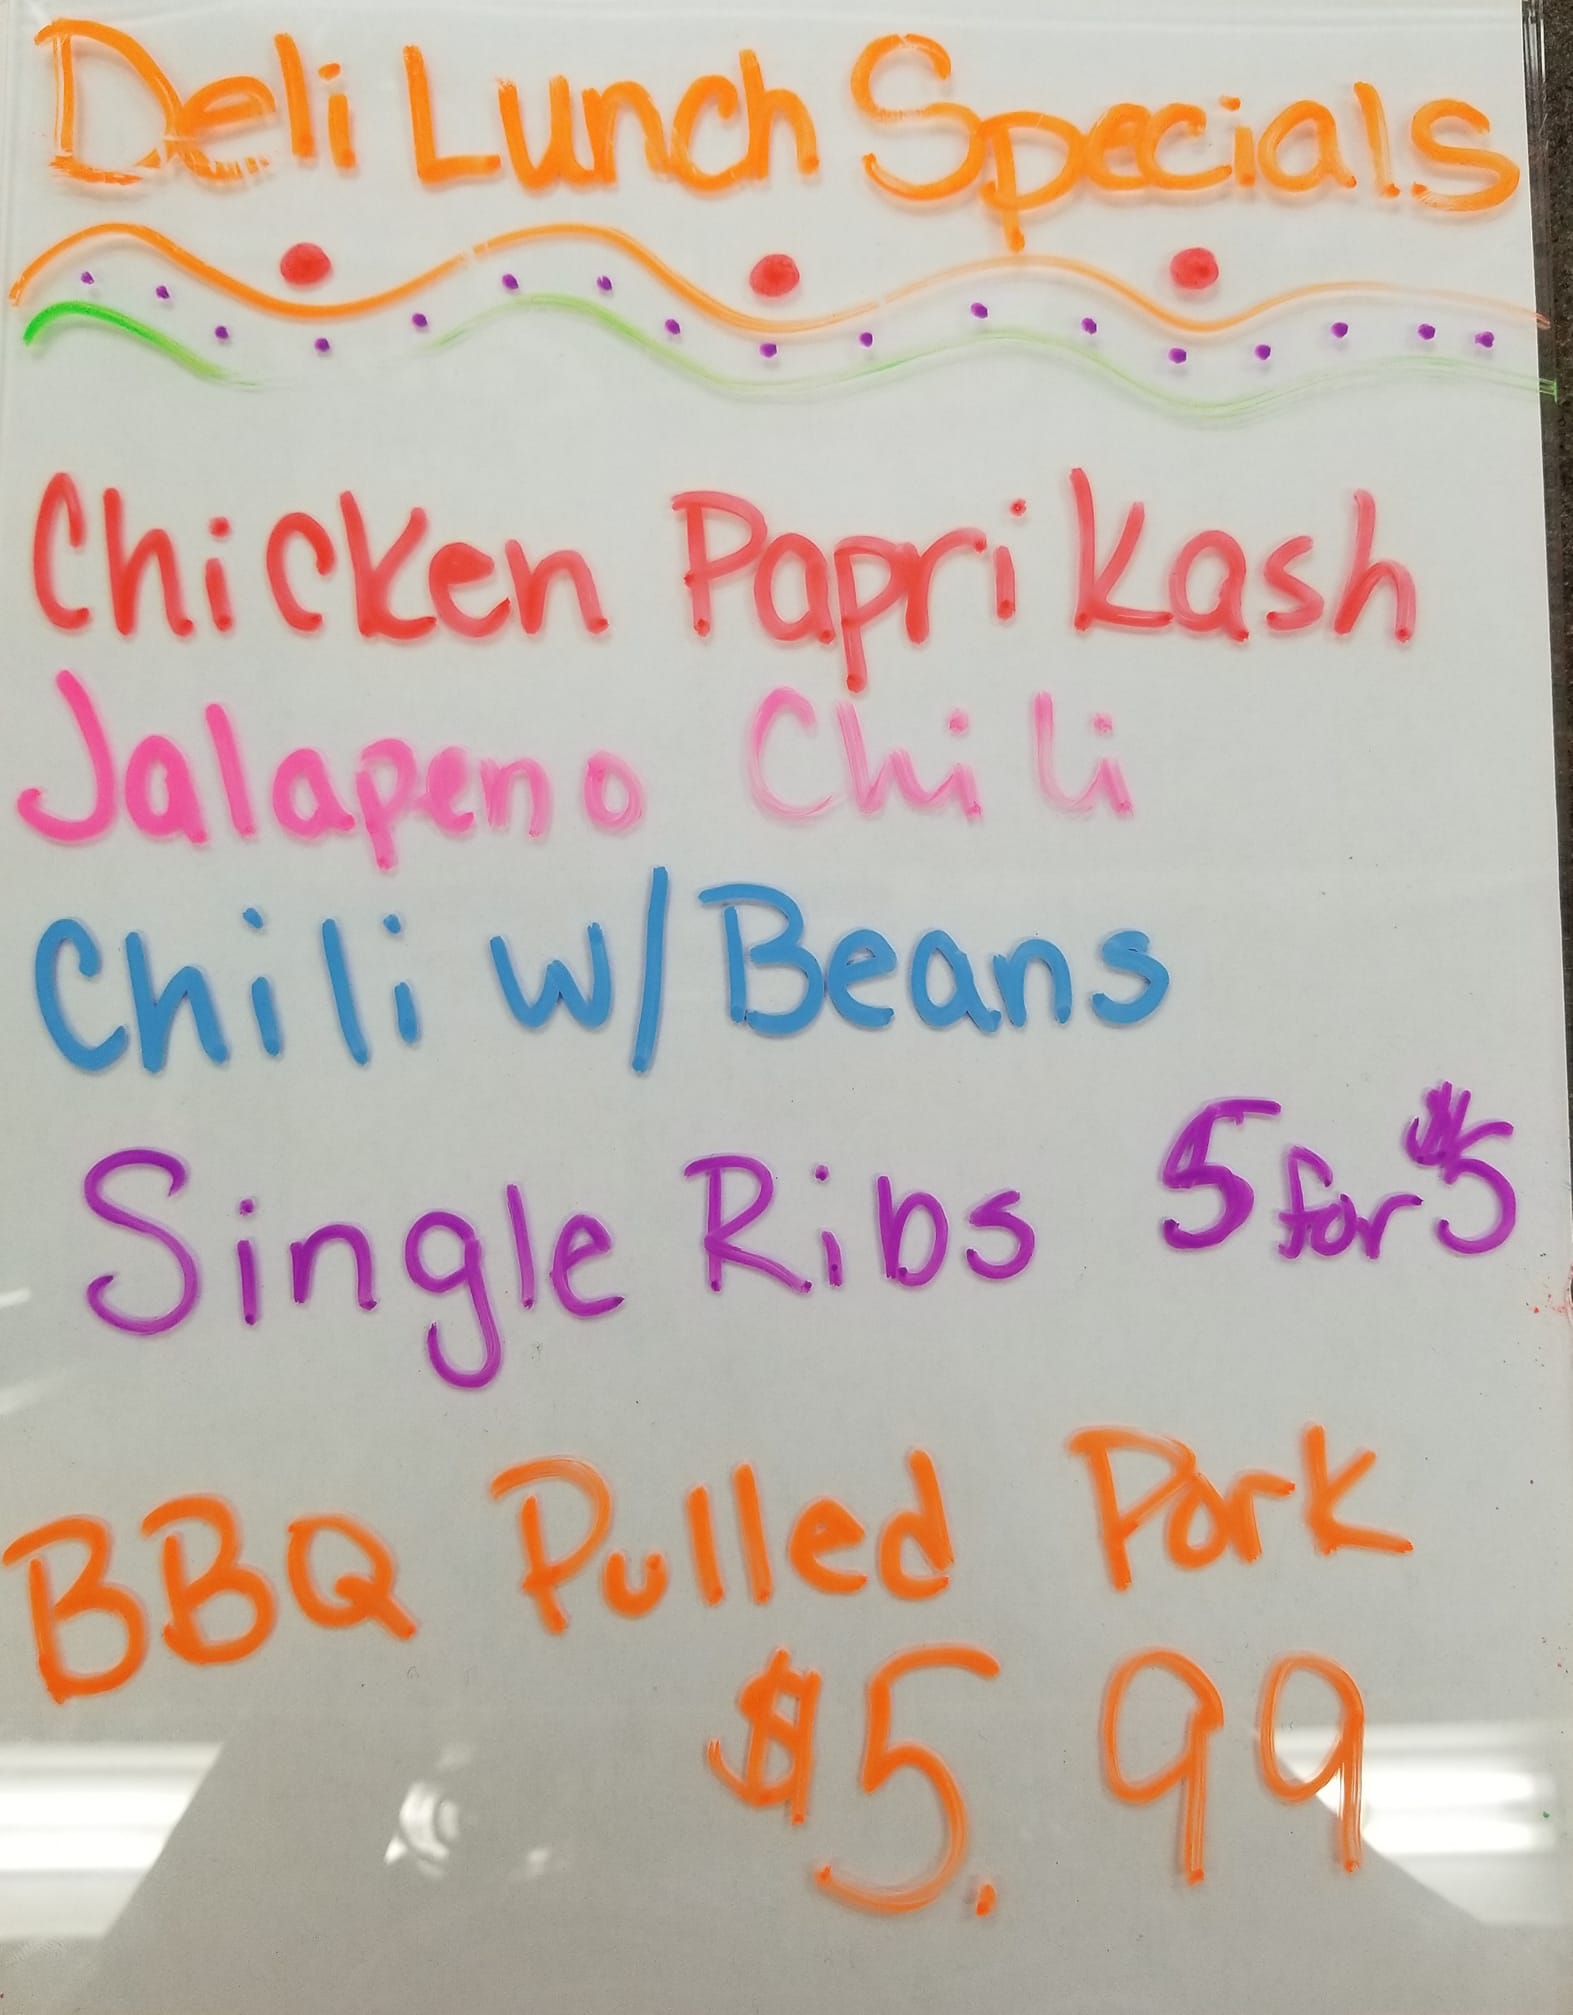 Deli Lunch Specials
Chicken Paprikash
Jalapeno Chili
Chili w/ Beans
Single Ribs 5 for $5
BBQ Pulled Pork
$5.99